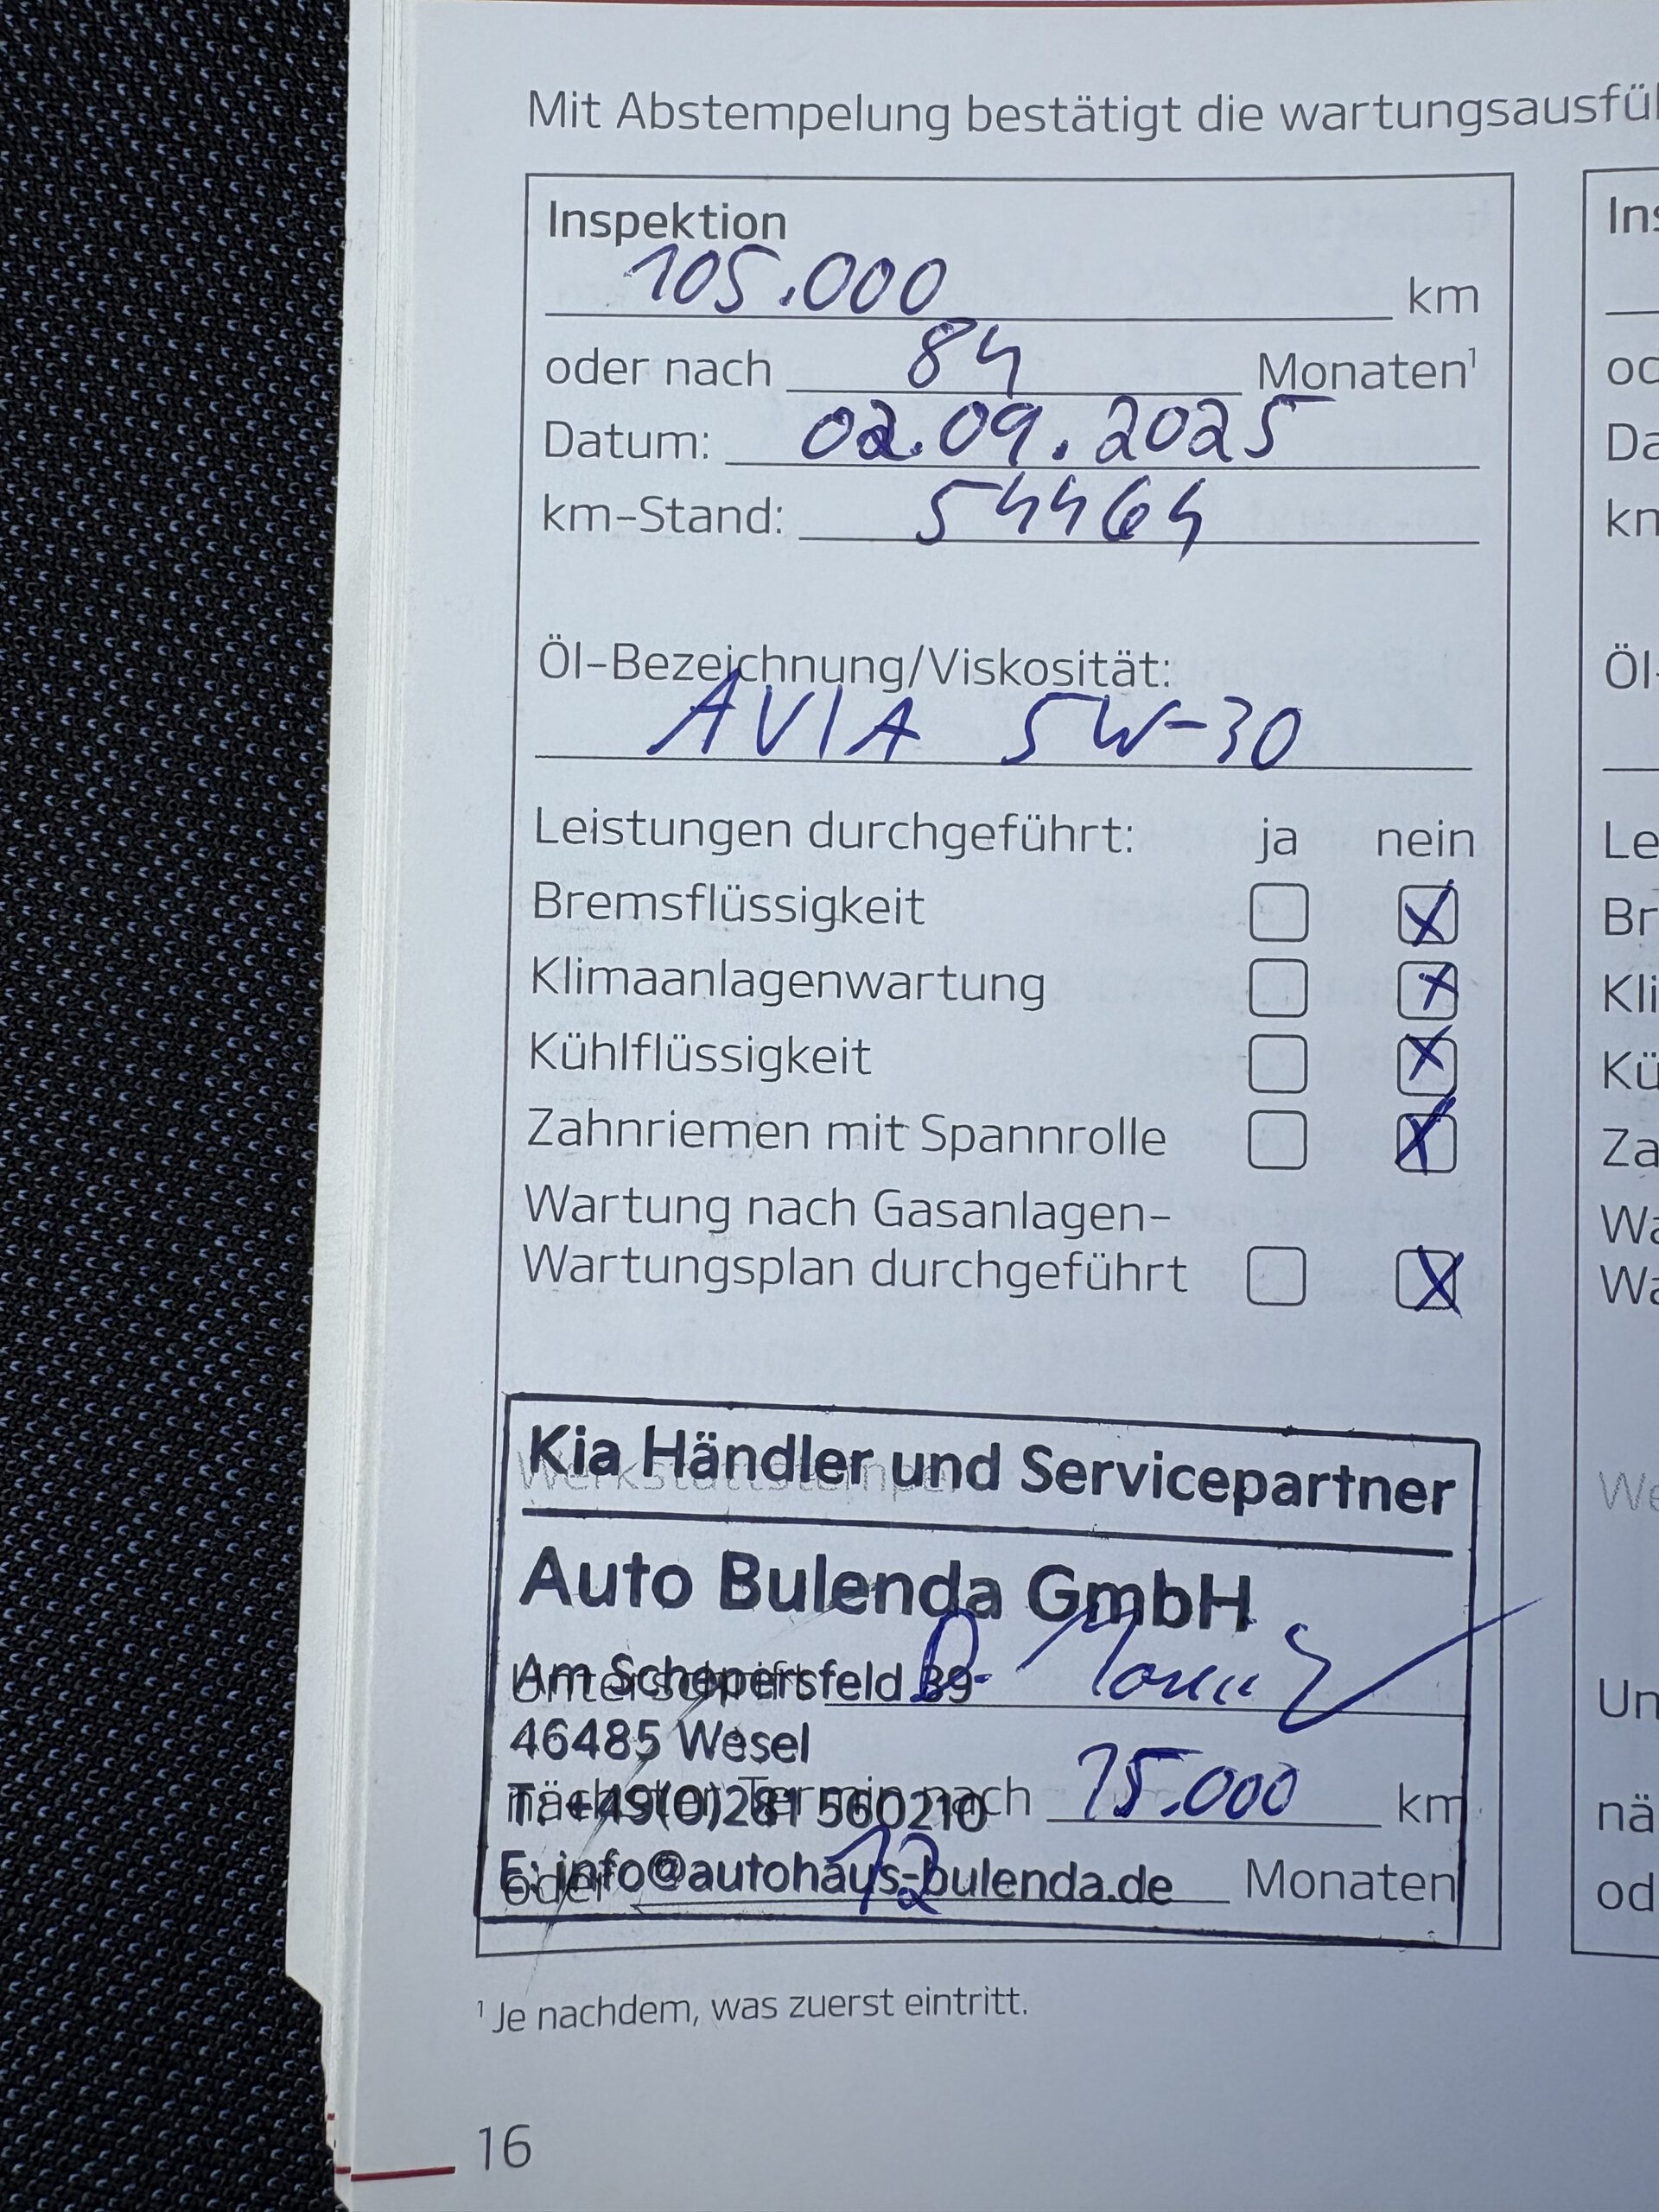 Mit Abstempelung bestätigt die wartungsausfü
Inspektion
105.000 km
oder nach 84 Monaten¹
Datum: 02.09.2025
km-Stand: 54464
Öl-Bezeichnung/Viskosität:
AVIA 5W-30
Leistungen durchgeführt: ja nein
Bremsflüssigkeit X
Klimaanlagenwartung X
Kühlflüssigkeit X
Zahnriemen mit Spannrolle X
Wartung nach Gasanlagen-
Wartungsplan durchgeführt X
Kia Händler und Servicepartner
Werkstattstempel
Auto Bulenda GmbH
Am Schepersfeld 39
Unterschrift
46485 Wesel
T: +49(0)281 560210
nächster Termin nach 15.000 km
E: info@autohaus-bulenda.de
oder 12 Monaten
¹ Je nachdem, was zuerst eintritt.
16
Ins
od
Da
km
Öl-
Le
Br
Kli
Kü
Za
Wa
Wa
We
Un
nä
od